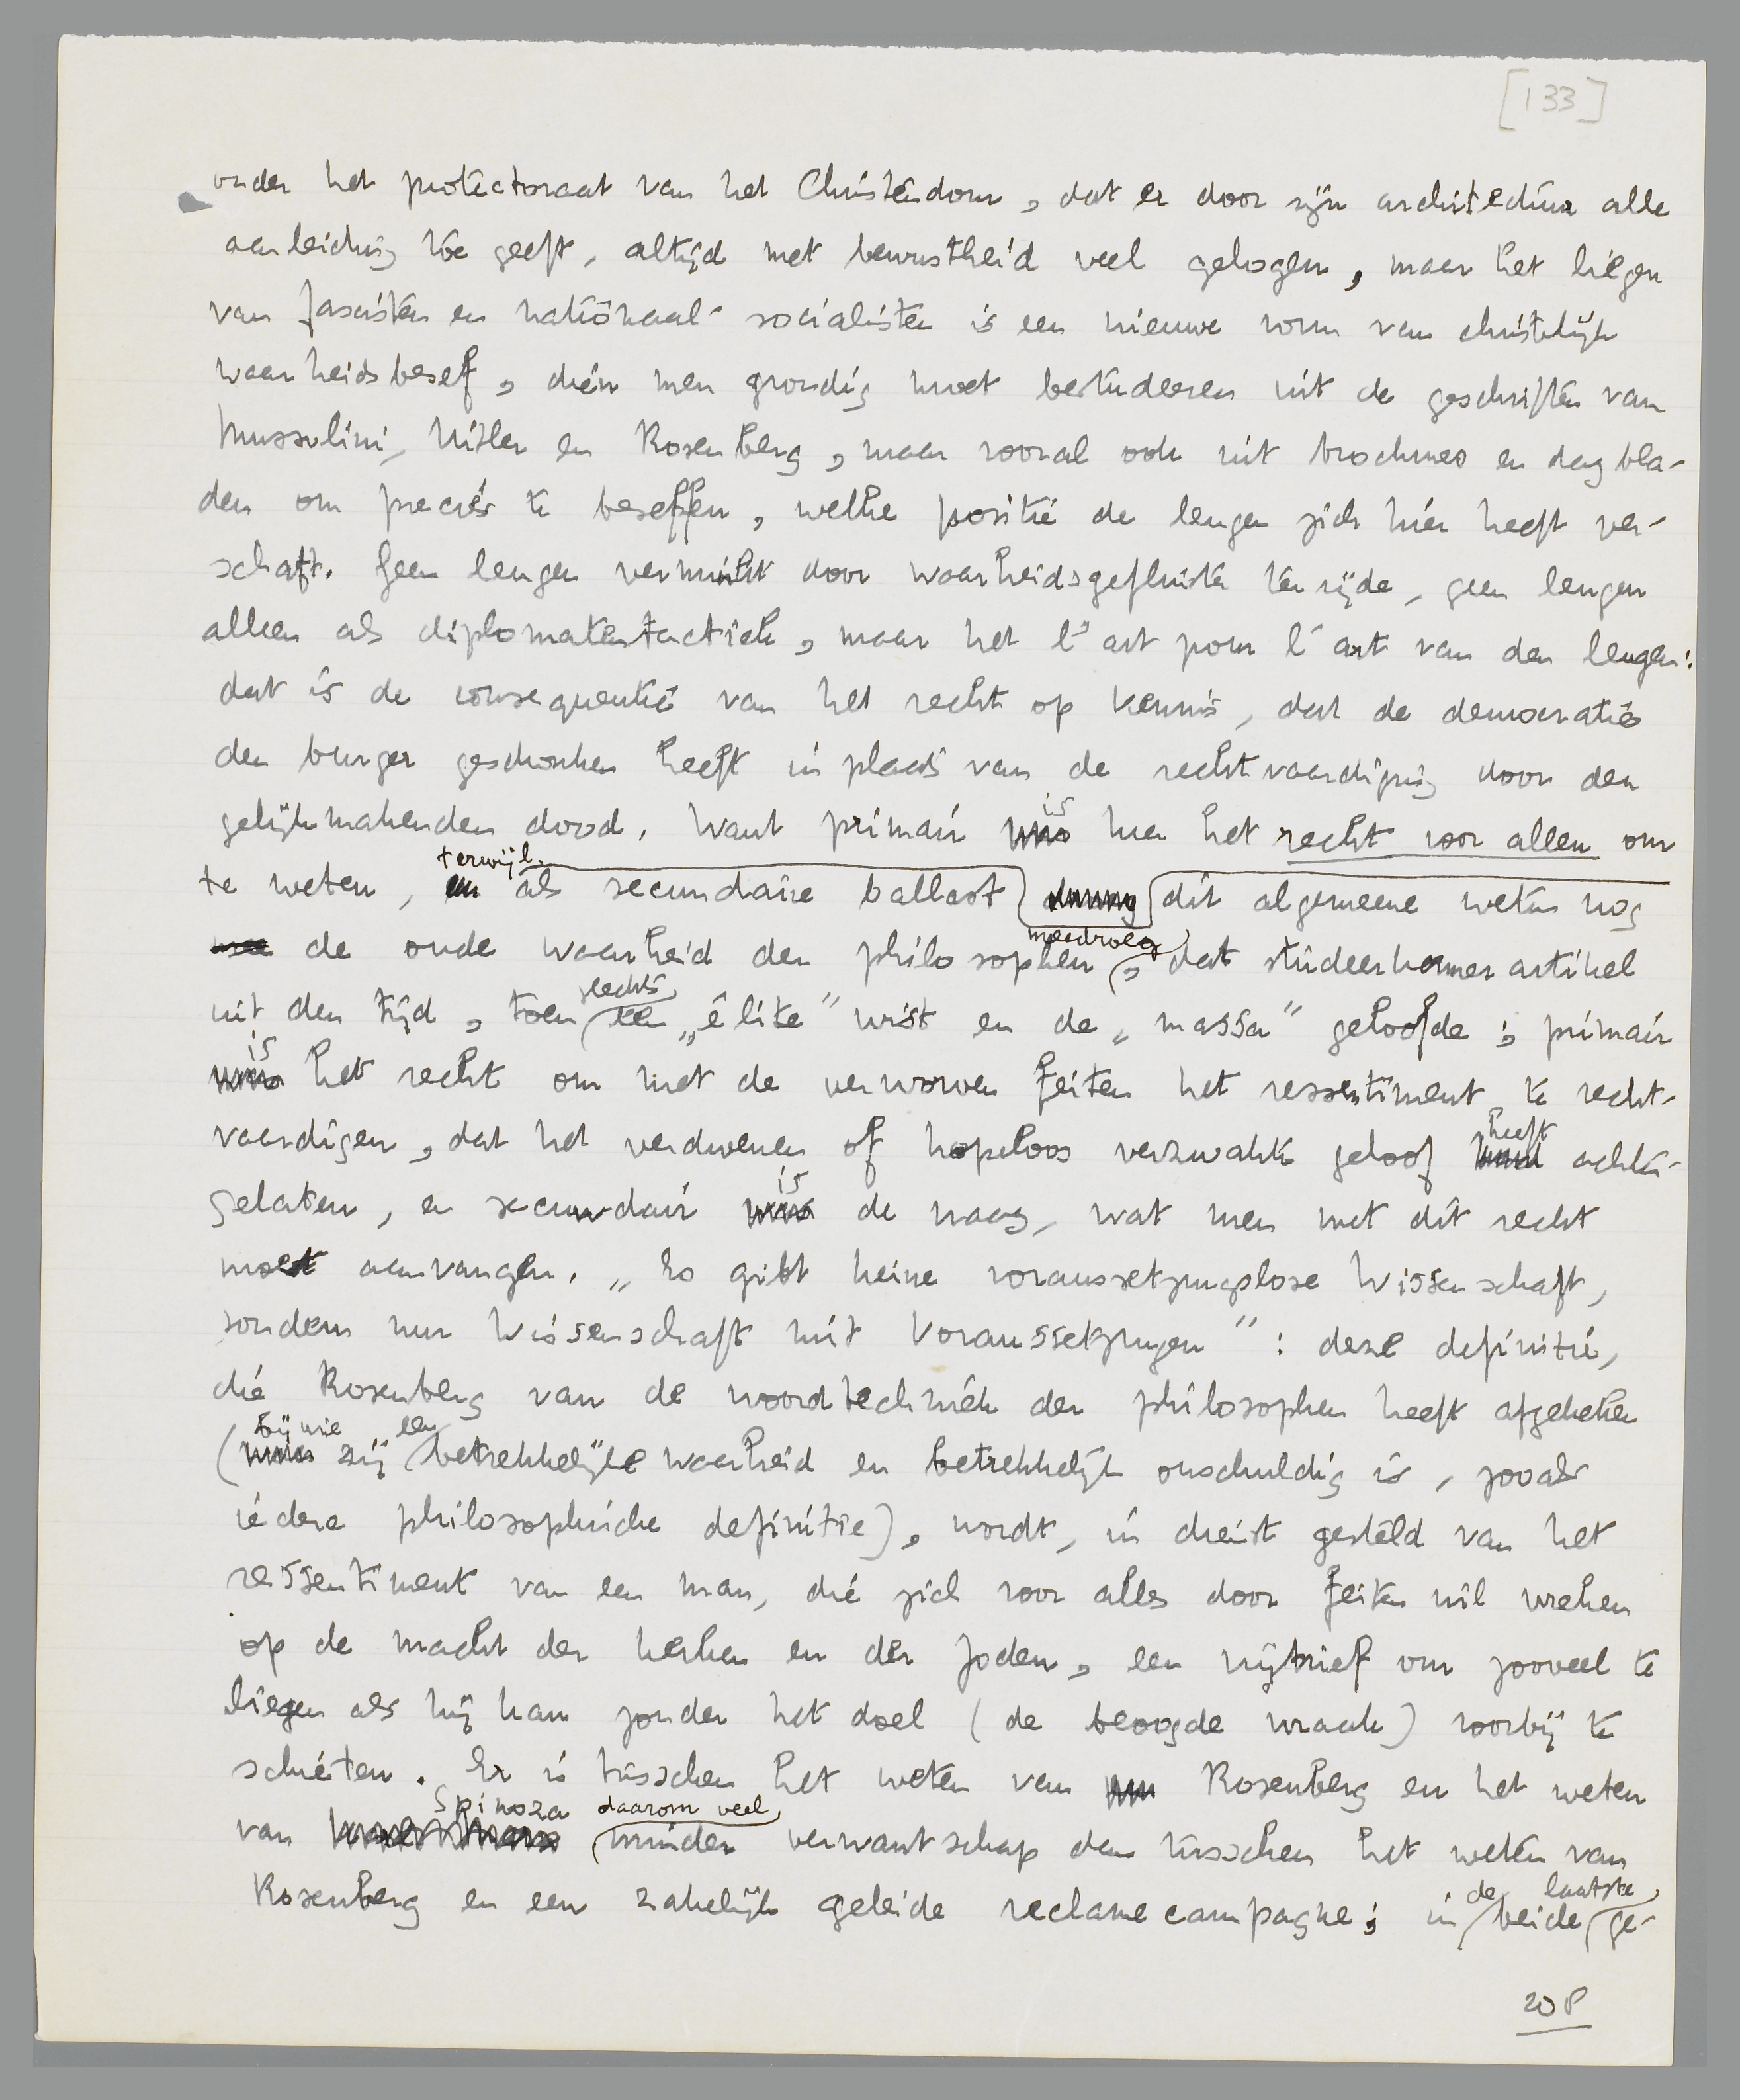 [133]
onder het protectoraat van het Christendom, dat er door zijn architectuur alle
aanleiding toe geeft, altijd met bewustheid veel gelogen, maar het liegen
van fascisten en nationaal-socialisten is een nieuwe vorm van christelijk
waarheidsbesef, dien men grondig moet bestudeeren uit de geschriften van
Mussolini, Hitler en Rosenberg, maar vooral ook uit brochures en dagbla-
den om precies te beseffen, welke positie de leugen zich hier heeft ver-
schaft. Geen leugen verminkt door waarheidsgefluister terzijde, geen leugen
alleen als diplomatentactiek, maar het l'art pour l'art van den leugen:
dat is de consequentie van het recht op kennis, dat de democratie
den burger geschonken heeft in plaats van de rechtvaardiging door den
gelijkmakenden dood. Want primair is hier het recht voor allen om
te weten, terwijl als secundaire ballast dit algemeene weten nog
de oude waarheid der philosophen meedroeg, dat studeerkamerartikel
uit den tijd, toen slechts een „élite” wist en de „massa” geloofde; primair
is het recht om met de verworven feiten het ressentiment te recht-
vaardigen, dat het verdwenen of hopeloos verzwakte geloof heeft achter-
gelaten, en secundair is de vraag, wat men met dit recht
moet aanvangen. „Es gibt keine voraussetzungslose Wissenschaft,
sondern nur Wissenschaft mit Voraussetzungen”: deze definitie,
die Rosenberg van de woordtechniek der philosophen heeft afgekeken
(bij wie zij een betrekkelijke waarheid en betrekkelijk onschuldig is, zooals
iedere philosophische definitie), wordt, in dienst gesteld van het
ressentiment van een man, die zich voor alles door feiten wil wreken
op de macht der kerken en der Joden, een vrijbrief om zooveel te
liegen als hij kan zonder het doel (de beoogde wraak) voorbij te
schieten. Er is tusschen het weten van Rosenberg en het weten
van Spinoza daarom veel minder verwantschap dan tusschen het weten van
Rosenberg en een zakelijk geleide reclamecampagne; in de beide laatste ge-
208